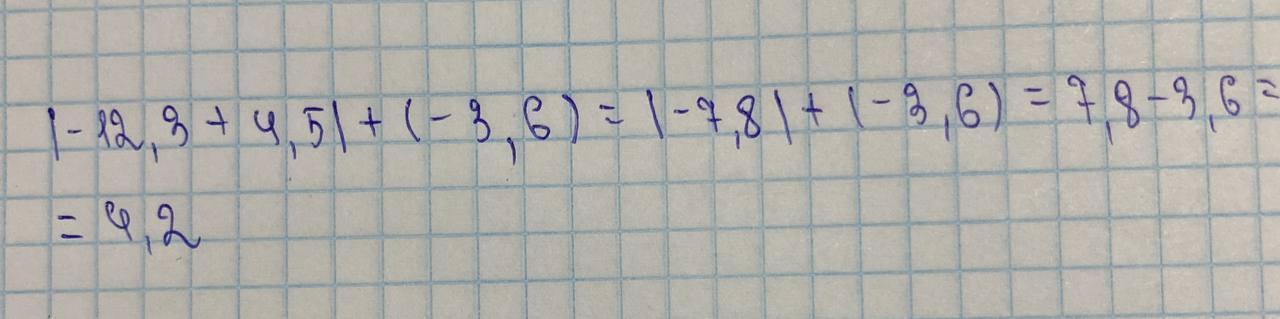 |-12,3 + 4,5| + (-3,6) = |-7,8| + (-3,6) = 7,8 - 3,6 =
= 4,2